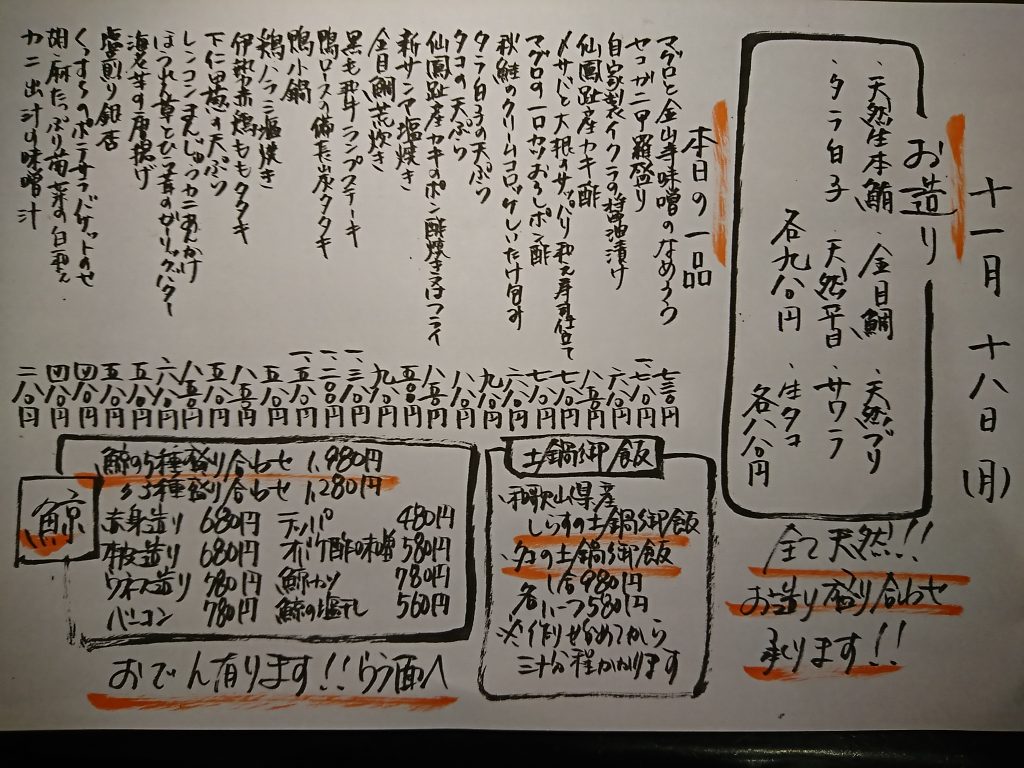 十一月 十八日 (月)
お造り
・天然生本鮪 ・金目鯛 ・天然ブリ
・タラ白子 ・天然平目 ・サワラ
各九八〇円 ・生タコ
各八八〇円
全て天然!!
お造り盛り合わせ
承ります!!
本日の一品
マグロと金山寺味噌のなめろう 七三〇円
セコガニ甲羅盛り 一、七八〇円
自家製イクラの醤油漬け 六八〇円
仙鳳趾産カキ酢 八五〇円
〆サバと大根のサッパリ和え寿司仕立て 七八〇円
マグロの一口カツおろしポン酢 七八〇円
秋鮭のクリームコロッケしいたけ包み 六八〇円
タラ白子の天ぷら 九八〇円
タコの天ぷら 八八〇円
仙鳳趾産カキのポン酢焼き又はフライ 八五〇円
新サンマ塩焼き 五八〇円
金目鯛荒炊き 九八〇円
黒毛和牛ランプステーキ 一、三八〇円
鴨ロースの備長炭タタキ 一、二〇〇円
鴨小鍋 一、五八〇円
鶏ハラミ塩焼き 五八〇円
伊勢赤鶏ももタタキ 八五〇円
下仁田葱の天ぷら 五八〇円
レンコンまんじゅうカニあんかけ 八五〇円
ほうれん草とひら茸のガリックバター 六八〇円
海老芋の唐揚げ 五八〇円
塩煎り銀杏 五八〇円
くつすらのポテサラバケットのせ 四八〇円
胡麻たっぷり菊菜の白和え 四八〇円
カニ出汁の味噌汁 二八〇円
土鍋御飯
・和歌山県産
しらすの土鍋御飯
・タコの土鍋御飯
各 1合980円
ハーフ580円
※作りはじめてから
三十分程かかります
鯨
鯨の5種盛り合わせ 1,980円
〃 3種盛り合わせ 1,280円
赤身造り 680円 テッパ 480円
本皮造り 680円 オバケ酢味噌 580円
ウネス造り 780円 鯨カツ 780円
ベーコン 780円 鯨の塩干し 560円
おでん有ります!! ウラ面へ